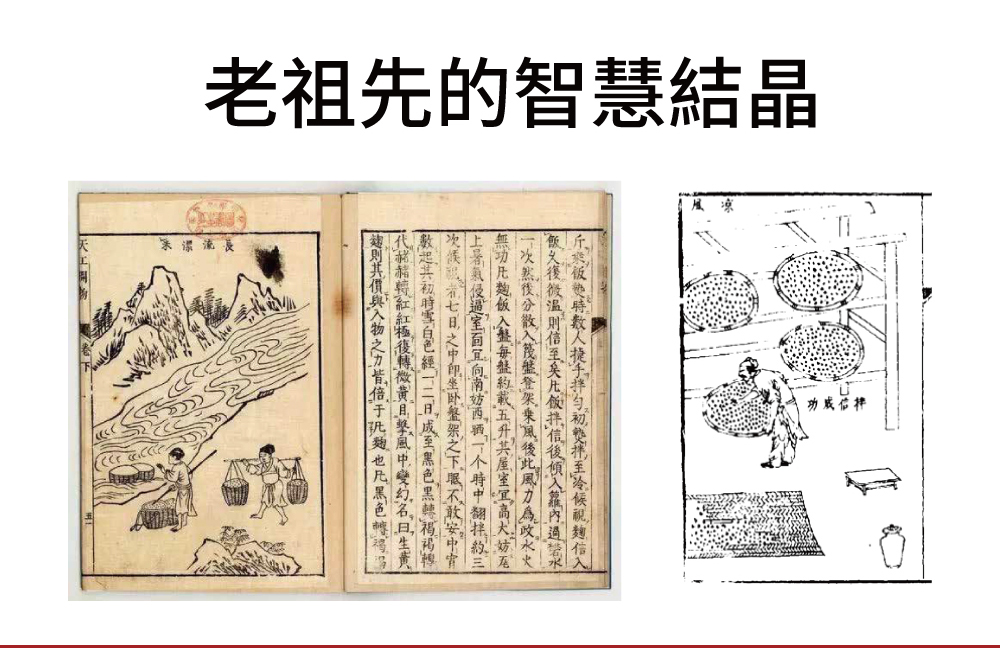 老祖先的智慧結晶
長流漂米
天工開物
卷下
斤蒸飯熟時數人捷手拌勻初熱拌至冷候視麴信入
飯久復微溫則信至矣凡飯拌信後傾入籮內過礬水
一次然後分散入篾盤登架乘風後此風力為政水火
無功凡麴飯入盤每盤約載五升其屋室宜高大妨瓦
上暑氣侵逼室面宜向南妨西晒一个時中翻拌約三
次候視者七日之中即坐臥盤架之下眠不敢安中宵
數起其初時雪白色經一二日成至黑色黑轉褐褐轉
代赭赭轉紅紅極復轉微黃目擊風中變幻名曰生黃
麴則其價與入物之力皆倍于凡麴也凡黑色轉褐褐
涼風
拌信成功